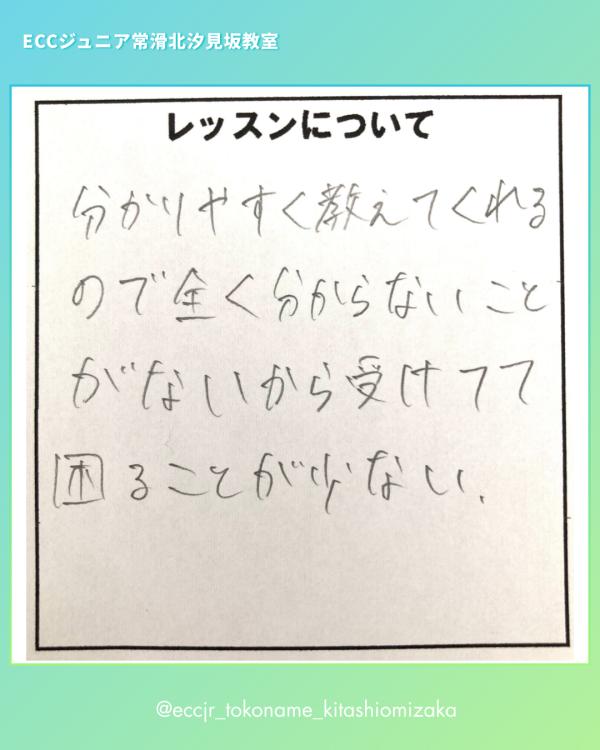 ECCジュニア常滑北汐見坂教室
レッスンについて
分かりやすく教えてくれる
ので全く分からないこと
がないから受けてて
困ることが少ない.
@eccjr_tokoname_kitashiomizaka